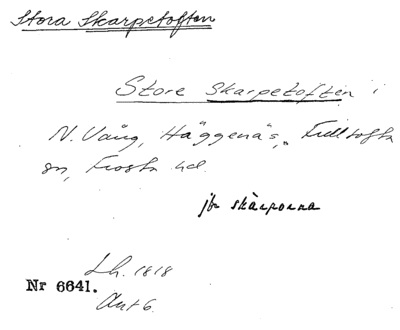 Stora Skarpetoften
Store Skarpetoften i
N. Vång, Häggenäs, Fulltofta
sn, Frosta hd.
jfr skärporna
Lh. 1818
Nr 6641.
Akt 6.